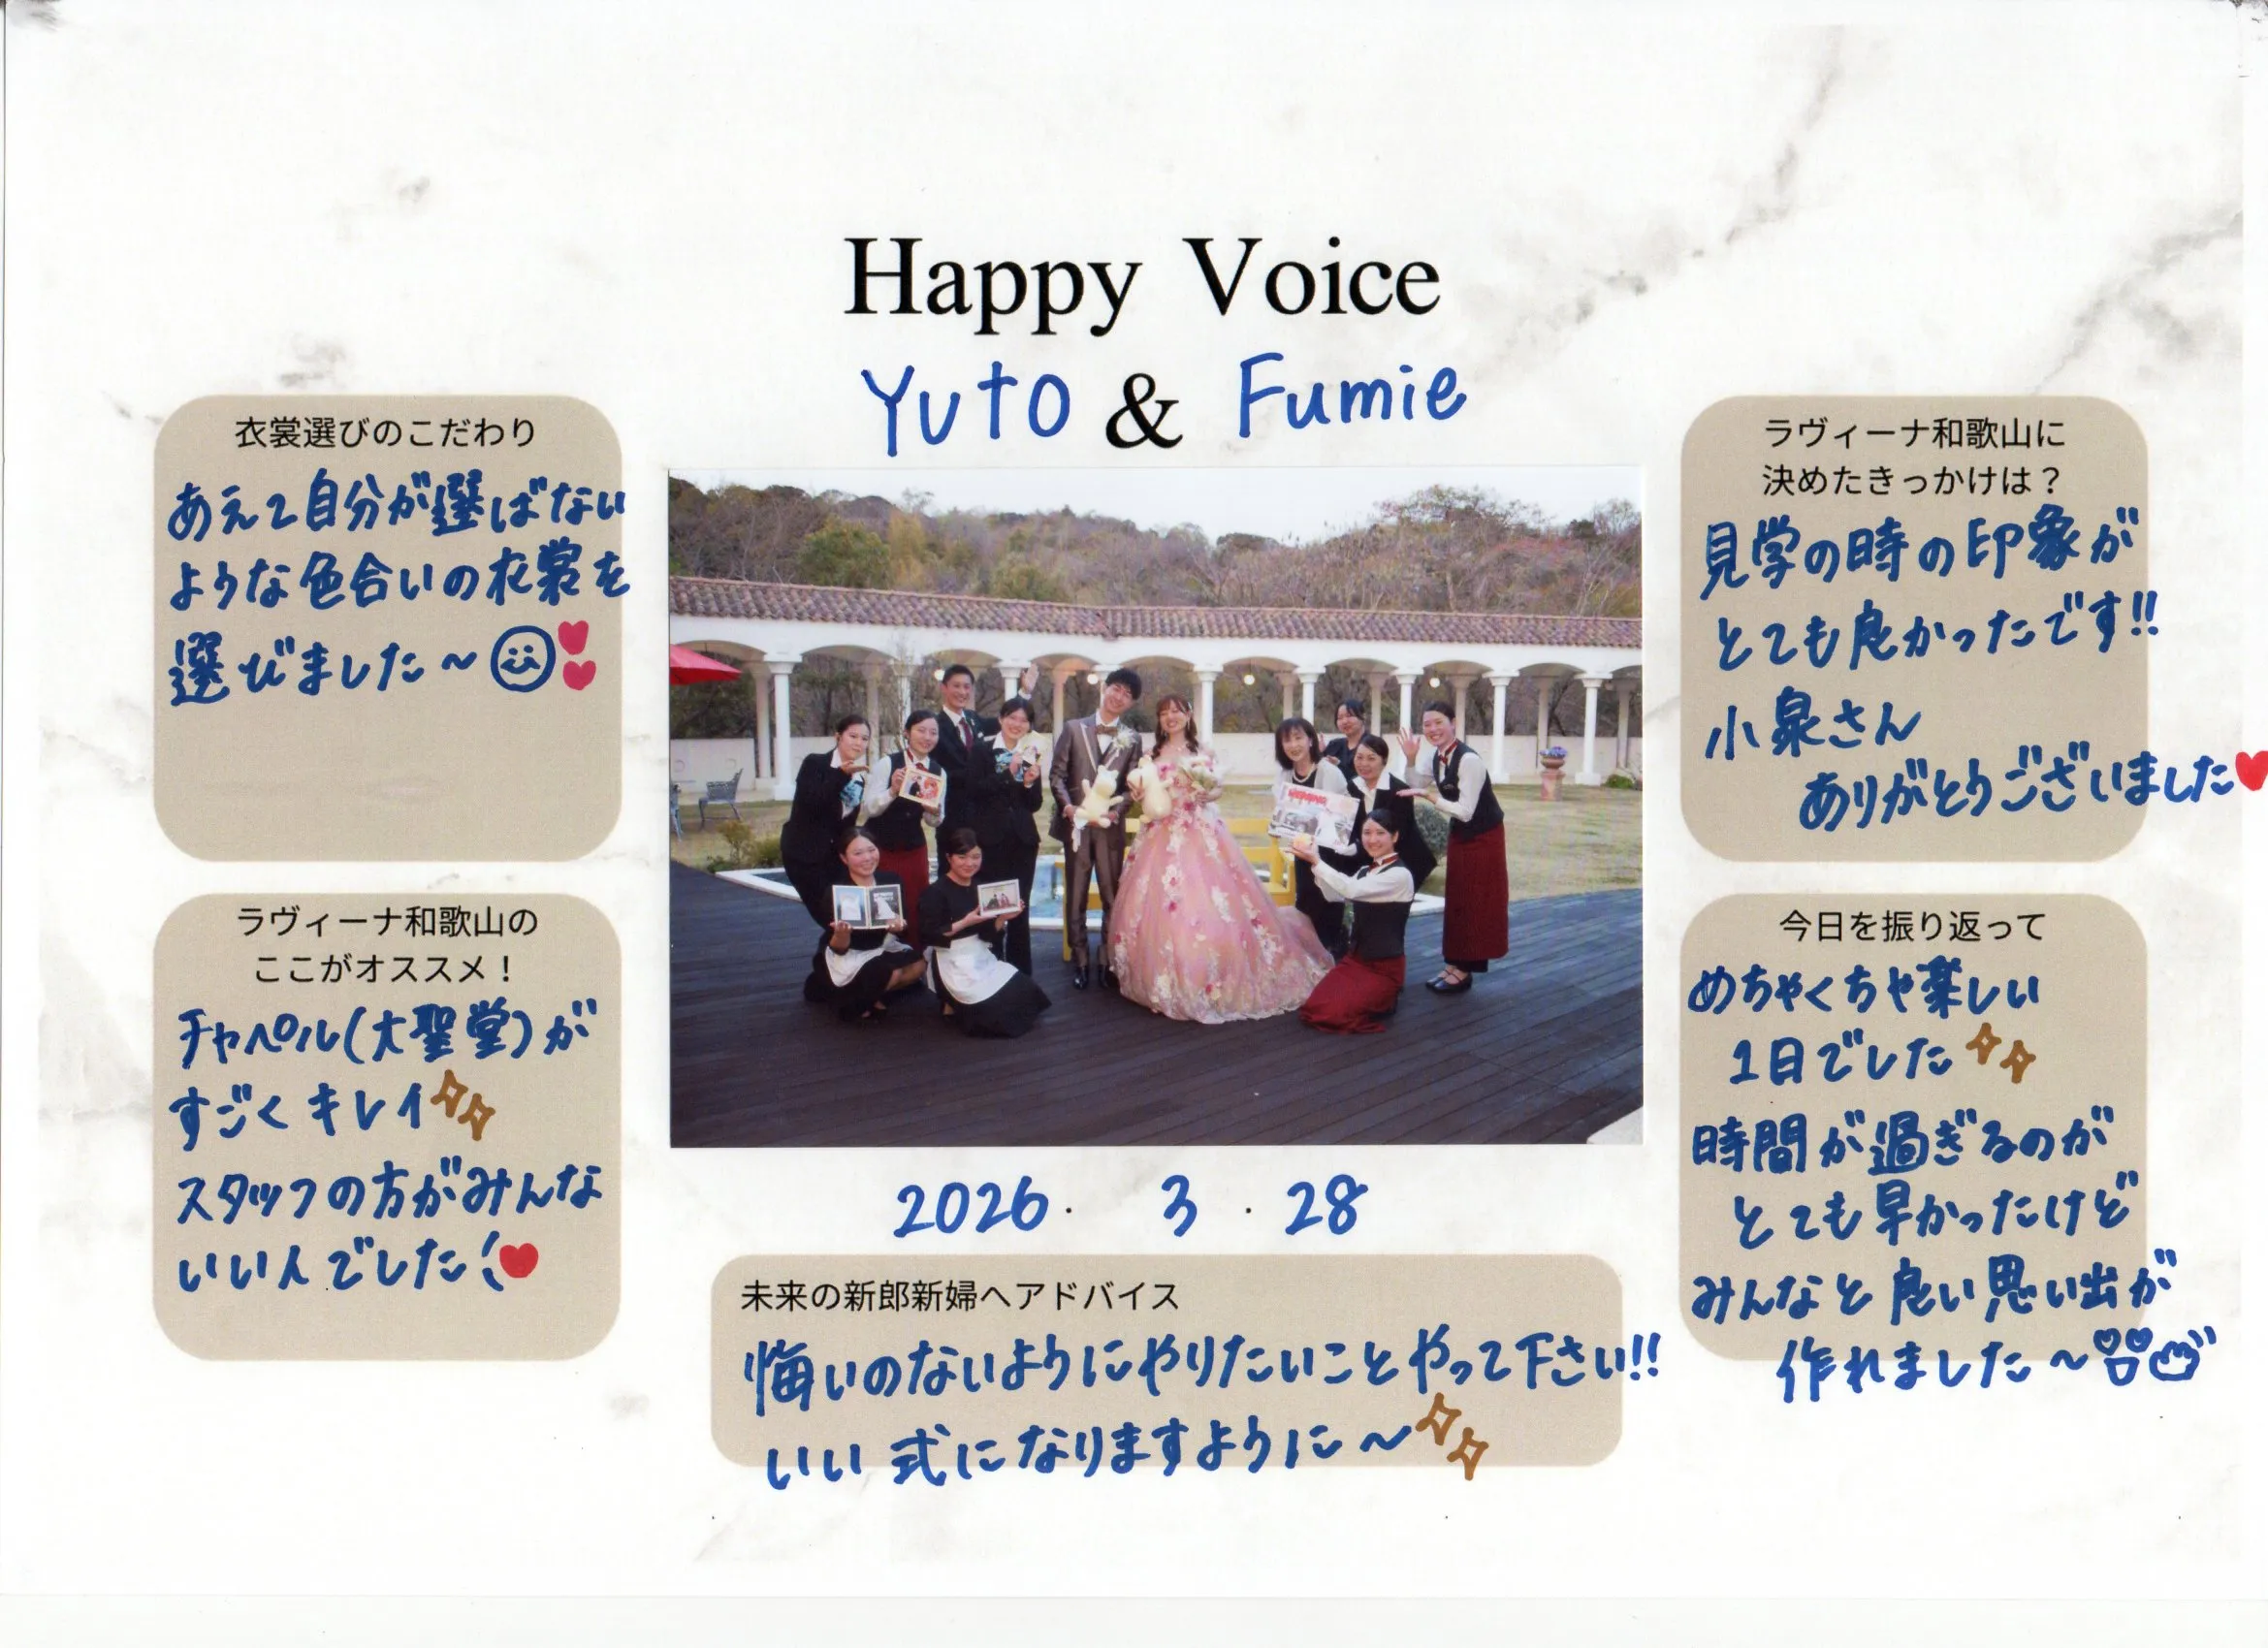 Happy Voice
Yuto & Fumie
衣裳選びのこだわり
あえて自分が選ばない
ような色合いの衣裳を
選びました〜
ラヴィーナ和歌山の
ここがオススメ！
チャペル(大聖堂)が
すごくキレイ
スタッフの方がみんな
いい人でした
ラヴィーナ和歌山に
決めたきっかけは？
見学の時の印象が
とても良かったです!!
小泉さん
ありがとうございました
今日を振り返って
めちゃくちゃ楽しい
1日でした
時間が過ぎるのが
とても早かったけど
みんなと良い思い出が
作れました〜
2026. 3 . 28
未来の新郎新婦へアドバイス
悔いのないようにやりたいことやって下さい!!
いい式になりますように〜